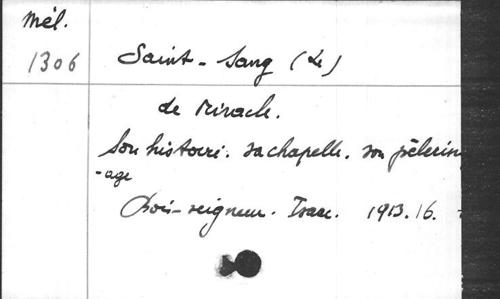 Mél.
1306
Saint-Sang (Le)
de Miracle.
Son histoire. sa chapelle. son pèlerin
-age
Bois-Seigneur. Isaac. 1913. 16.